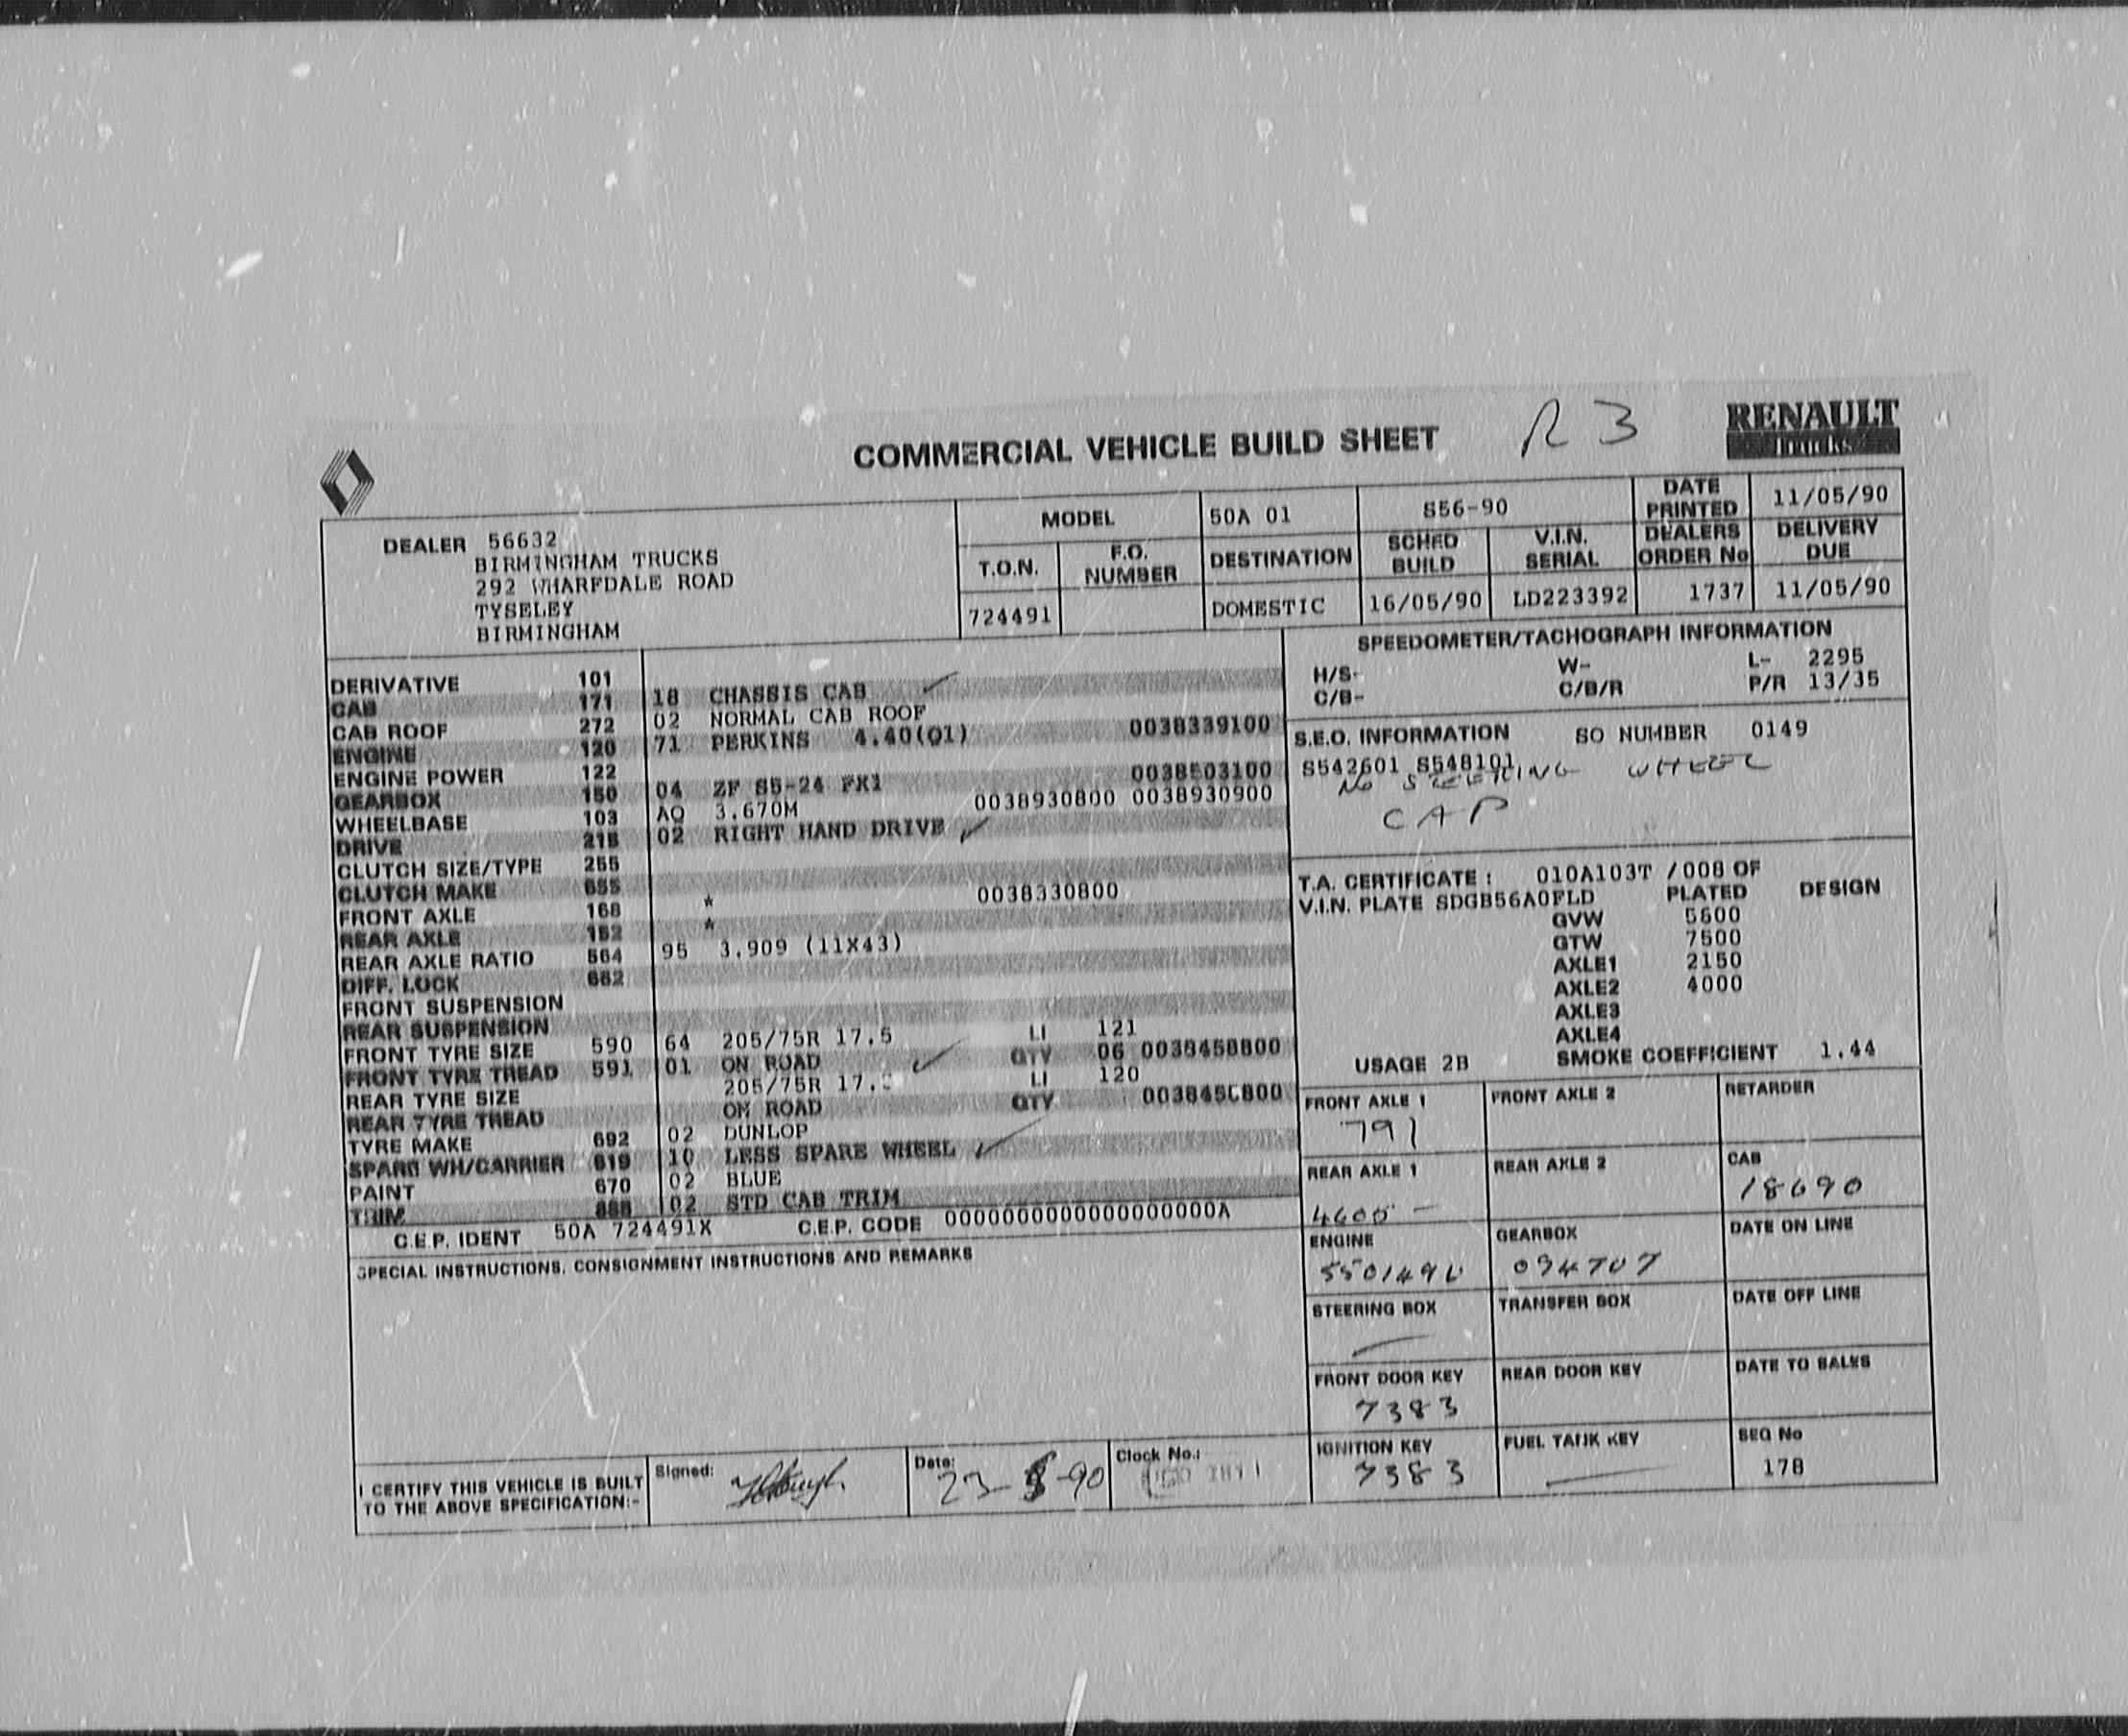 COMMERCIAL VEHICLE BUILD SHEET R 3 RENAULT
DEALER 56632
BIRMINGHAM TRUCKS
292 WHARFDALE ROAD
TYSELEY
BIRMINGHAM
MODEL 50A 01 S56-90 DATE PRINTED 11/05/90
T.O.N. F.O. NUMBER DESTINATION SCHED BUILD V.I.N. SERIAL DEALERS ORDER No DELIVERY DUE
724491 DOMESTIC 16/05/90 LD223392 1737 11/05/90
DERIVATIVE 101
CAB 171 18 CHASSIS CAB
CAB ROOF 272 02 NORMAL CAB ROOF
ENGINE 120 71 PERKINS 4.40(Q1) 0038339100
ENGINE POWER 122
GEARBOX 150 04 ZF S5-24 FX1 0038503100
WHEELBASE 103 AQ 3.670M 0038930800 0038930900
DRIVE 215 02 RIGHT HAND DRIVE
CLUTCH SIZE/TYPE 255
CLUTCH MAKE 655
FRONT AXLE 168 * 0038330800
REAR AXLE 152 *
REAR AXLE RATIO 564 95 3.909 (11X43)
DIFF. LOCK 662
FRONT SUSPENSION
REAR SUSPENSION
FRONT TYRE SIZE 590 64 205/75R 17.5 LI 121
FRONT TYRE TREAD 591 01 ON ROAD QTY 06 0038458800
REAR TYRE SIZE 205/75R LI 120
REAR TYRE TREAD ON ROAD QTY
TYRE MAKE 692 02 DUNLOP
SPARE WH/CARRIER 619 10 LESS SPARE WHEEL
PAINT 670 02 BLUE
TRIM 885 02 STD CAB TRIM
C.E.P. IDENT 50A 724491X C.E.P. CODE 0000000000000000000A
SPECIAL INSTRUCTIONS. CONSIGNMENT INSTRUCTIONS AND REMARKS
I CERTIFY THIS VEHICLE IS BUILT
TO THE ABOVE SPECIFICATION:-
Signed:
Date: 23 -90
Clock No.:
SPEEDOMETER/TACHOGRAPH INFORMATION
H/S- W- L- 2295
C/B- C/B/R P/R 13/35
S.E.O. INFORMATION SO NUMBER 0149
S542601 S548101
NO STEERING WHEEL
CAP
T.A. CERTIFICATE : 010A103T /008 OF
V.I.N. PLATE SDGB56A0FLD PLATED DESIGN
GVW 5600
GTW 7500
AXLE1 2150
AXLE2 4000
AXLE3
AXLE4
USAGE 2B SMOKE COEFFICIENT 1.44
FRONT AXLE 1 FRONT AXLE 2 RETARDER
791
REAR AXLE 1 REAR AXLE 2 CAB
4600 18690
ENGINE GEARBOX DATE ON LINE
094707
STEERING BOX TRANSFER BOX DATE OFF LINE
FRONT DOOR KEY REAR DOOR KEY DATE TO SALES
7383
IGNITION KEY FUEL TANK KEY SEQ No
7383 178